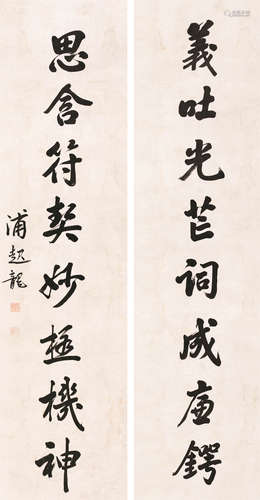 義吐光芒詞成廉鍔
思含符契妙極機神
浦起龍